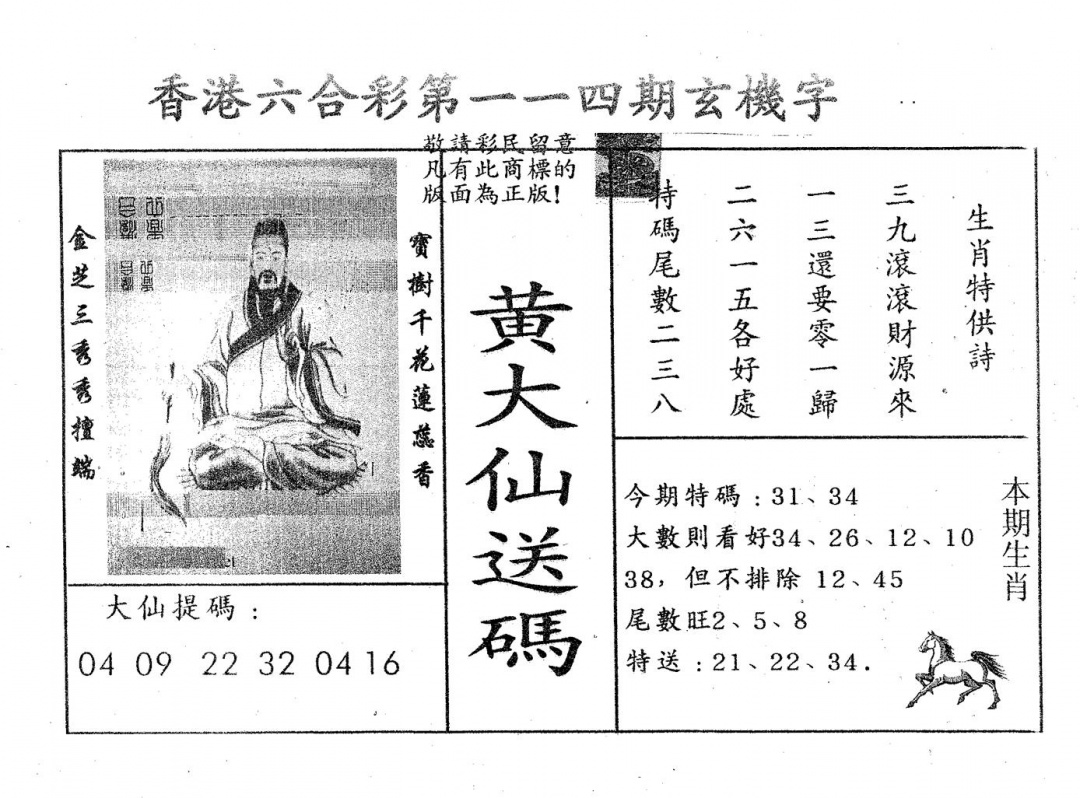 香港六合彩第一一四期玄機字
敬請彩民留意
凡有此商標的
版面為正版!
金芝三秀秀擅端
寶樹千花蓮蕊香
大仙提碼:
04 09 22 32 04 16
黄大仙送碼
生肖特供詩
三九滾滾財源來
一三還要零一歸
二六一五各好處
特碼尾數二三八
今期特碼:31、34
大數則看好34、26、12、10
38，但不排除 12、45
尾數旺2、5、8
特送:21、22、34.
本期生肖